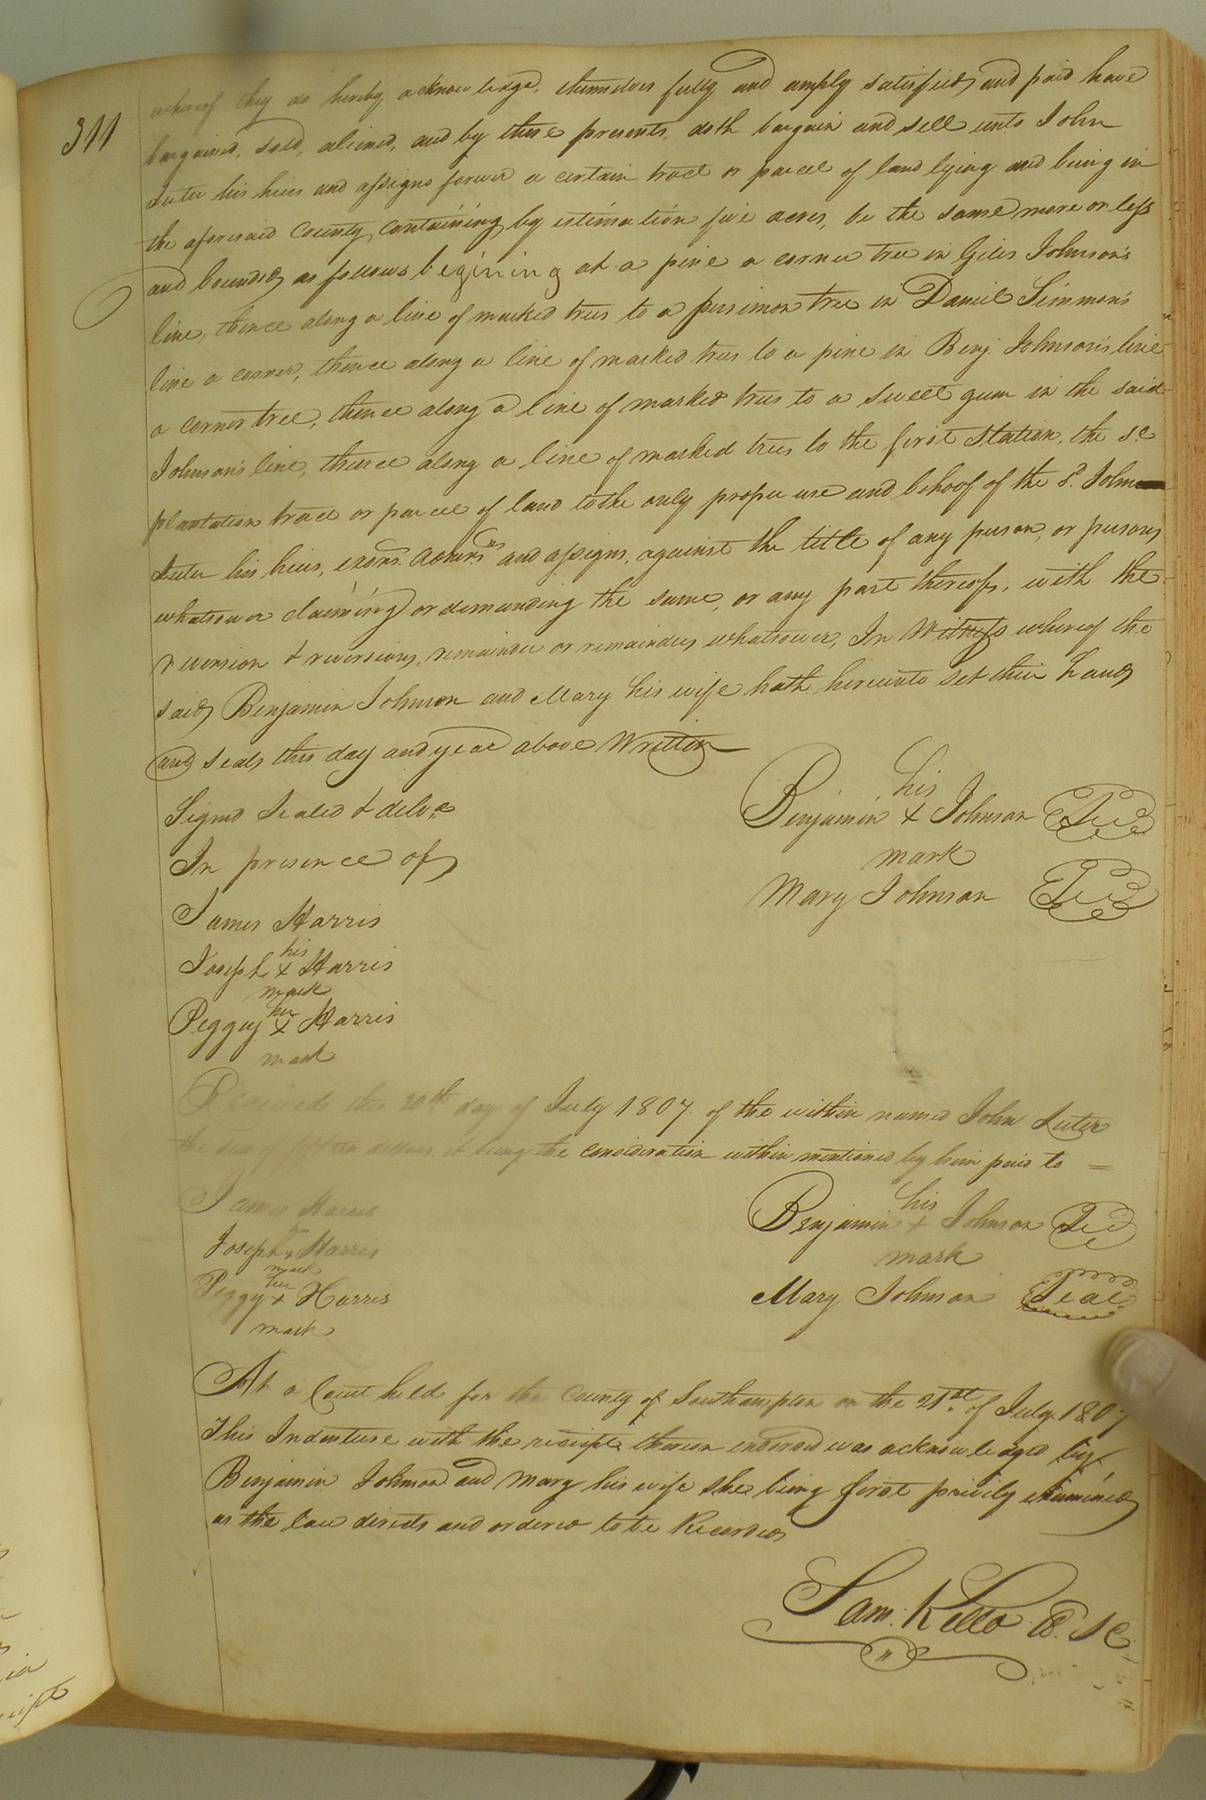 311
whereof they do hereby acknowledge, themselves fully and amply satisfied, and paid have
bargained, sold, aliened, and by these presents, doth bargain and sell unto John
Luter his heirs and assigns forever a certain tract or parcel of land lying and being in
the aforesaid County, containing by estimation five acres, be the same more or less
and bounded as follows begining at a pine a corner tree in Giles Johnson's
line, thence along a line of marked trees to a pursimon tree in Daniel Simmon's
line a corner, thence along a line of marked trees to a pine in Benj. Johnson's line
a corner tree, thence along a line of marked trees to a sweet gum in the said
Johnson's line, thence along a line of marked trees to the first Station, the sd
plantation tract or parcel of land to the only proper use and behoof of the sd. John
Luter his heirs, exors. admrs. and assigns, against the title of any person, or persons
whatsoever claiming or demanding the same, or any part thereof, with the
reversion & reversions, remainder or remainders whatsoever, In Witness whereof the
said Benjamin Johnson and Mary his wife hath hereunto set their hands
and seals this day and year above Written
Signd Sealed & delvd
In presence of
James Harris
Joseph his + mark Harris
Peggy her + mark Harris
Benjamin his + mark Johnson Seal
Mary Johnson Seal
Received this 20th day of July 1807. of the within named John Luter
the sum of fifteen dollars it being the consideration within mentioned by him paid to
James Harris
Joseph his + mark Harris
Peggy her + mark Harris
Benjamin his + mark Johnson Seal
Mary Johnson Seal
At a Court held for the County of Southampton on the 21st. of July 1807
This Indenture with the receipt thereon endorsed was acknowledged by
Benjamin Johnson and Mary his wife she being first privily examined
as the law directs and ordered to be Recorded
Sam. Kello Cl. S C